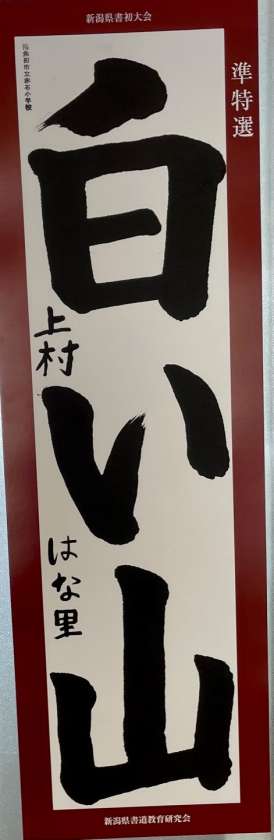 新潟県書初大会
準特選
白い山
魚沼市立赤石小学校
上村
はな里
新潟県書道教育研究会